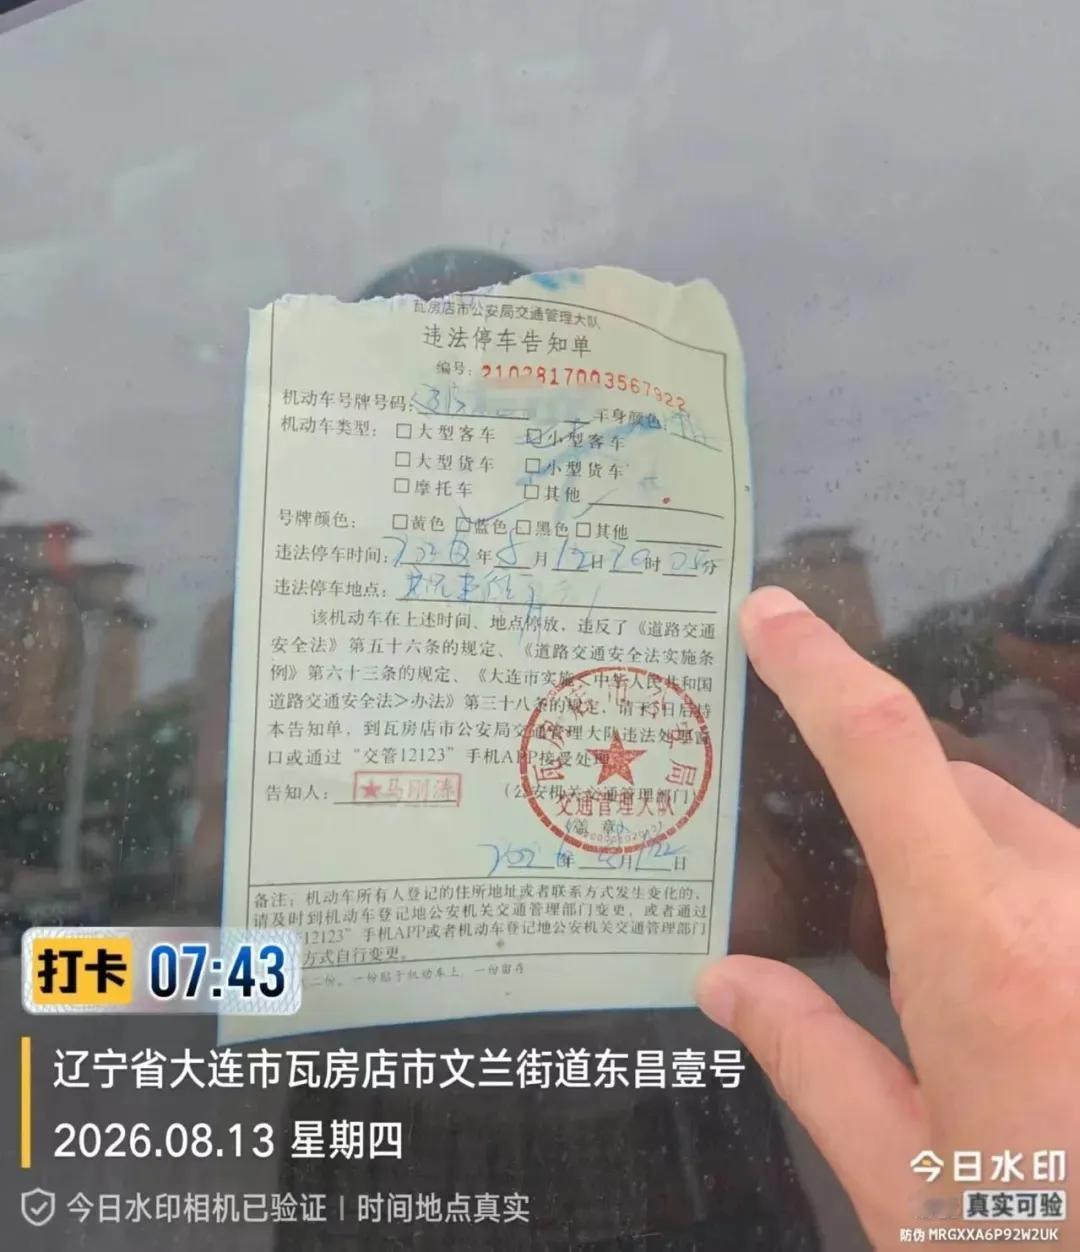 瓦房店市公安局交通管理大队
违法停车告知单
编号：2102817003567922
机动车号牌号码： 车身颜色：
机动车类型：□大型客车 □小型客车
□大型货车 □小型货车
□摩托车 □其他
号牌颜色：□黄色 □蓝色 □黑色 □其他
违法停车时间：2026年8月12日20时05分
违法停车地点：
该机动车在上述时间、地点停放，违反了《道路交通
安全法》第五十六条的规定、《道路交通安全法实施条
例》第六十三条的规定、《大连市实施<中华人民共和国
道路交通安全法>办法》第三十八条的规定，请于 日后持
本告知单，到瓦房店市公安局交通管理大队违法处理窗
口或通过“交管12123”手机APP接受处理
告知人：★马刚涛
（公安机关交通管理部门）
（盖 章）
瓦房店市公安局
交通管理大队
2026年8月12日
备注：机动车所有人登记的住所地址或者联系方式发生变化的，
请及时到机动车登记地公安机关交通管理部门变更，或者通过
12123”手机APP或者机动车登记地公安机关交通管理部门
方式自行变更。
二份，一份贴于机动车上，一份留存
打卡 07:43
辽宁省大连市瓦房店市文兰街道东昌壹号
2026.08.13 星期四
今日水印相机已验证 | 时间地点真实
今日水印
真实可验
防伪 MRGXXA6P92W2UK